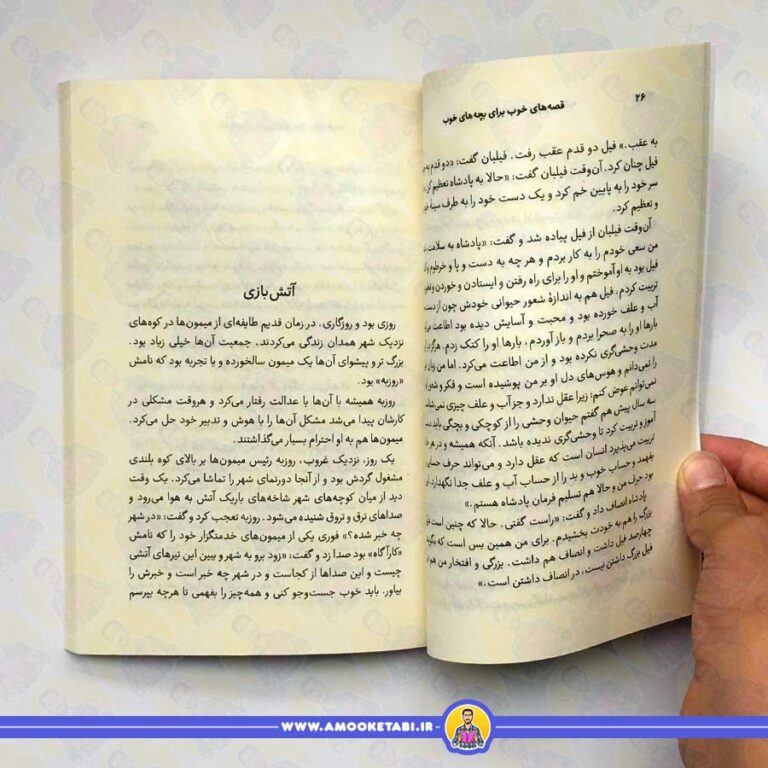 ۲۶
قصه‌های خوب برای بچه‌های خوب
به عقب.» فیل دو قدم عقب رفت. فیلبان گفت: «دو قدم به
فیل چنان کرد. آن‌وقت فیلبان گفت: «حالا به پادشاه تعظیم کن
سر خود را به پایین خم کرد و یک دست خود را به طرف سینه
و تعظیم کرد.
آن‌وقت فیلبان از فیل پیاده شد و گفت: «پادشاه به سلامت
من سعی خودم را به کار بردم و هر چه به دست و پا و خرطوم
فیل بود به او آموختم و او را برای راه رفتن و ایستادن و خوردن و
تربیت کردم، فیل هم به اندازهٔ شعور حیوانی خودش چون از دست
آب و علف خورده بود و محبت و آسایش دیده بود اطاعت
بارها او را به صحرا بردم و باز آوردم، بارها او را کتک زدم. هرگز در
مدت وحشی‌گری نکرده بود و از من اطاعت می‌کرد. اما من زبان
را نمی‌دانم و هوس‌های دل او بر من پوشیده است و فکر و شعور
نمی‌توانم عوض کنم؛ زیرا عقل ندارد و جز آب و علف چیزی
سه سال پیش هم گفتم حیوان وحشی را از کوچکی و بچگی باید
آموز و تربیت کرد تا وحشی‌گری ندیده باشد. آنکه همیشه و در هر
تربیت می‌پذیرد انسان است که عقل دارد و می‌تواند حرف
بفهمد و حساب خوب و بد را از حساب آب و علف جدا نگهدارد.
بود حرف من و حالا هم تسلیم فرمان پادشاه هستم.»
پادشاه انصاف داد و گفت: «راست گفتی. حالا که چنین است
بزرگ را هم به خودت بخشیدم. برای من همین بس است که
چهارصد فیل داشت و انصاف هم داشت. بزرگی و افتخار من هم
فیل بزرگ داشتن نیست، در انصاف داشتن است.»
آتش‌بازی
روزی بود و روزگاری. در زمان قدیم طایفه‌ای از میمون‌ها در کوه‌های
نزدیک شهر همدان زندگی می‌کردند. جمعیت آن‌ها خیلی زیاد بود.
بزرگ تر و پیشوای آن‌ها یک میمون سالخورده و با تجربه بود که نامش
«روزبه» بود.
روزبه همیشه با آن‌ها با عدالت رفتار می‌کرد و هروقت مشکلی در
کارشان پیدا می‌شد مشکل آن‌ها را با هوش و تدبیر خود حل می‌کرد.
میمون‌ها هم به او احترام بسیار می‌گذاشتند.
یک روز، نزدیک غروب، روزبه رئیس میمون‌ها بر بالای کوه بلندی
مشغول گردش بود و از آنجا دورنمای شهر را تماشا می‌کرد. یک وقت
دید از میان کوچه‌های شهر شاخه‌های باریک آتش به هوا می‌رود و
صداهای ترق و تروق شنیده می‌شود. روزبه تعجب کرد و گفت: «در شهر
چه خبر شده؟» فوری یکی از میمون‌های خدمتگزار خود را که نامش
«کارآگاه» بود صدا زد و گفت: «زود برو به شهر و ببین این تیرهای آتشی
چیست و این صداها از کجاست و در شهر چه خبر است و خبرش را
بیاور. باید خوب جست‌وجو کنی و همه‌چیز را بفهمی تا هرچه بپرسم
WWW.AMOOKETABI.IR